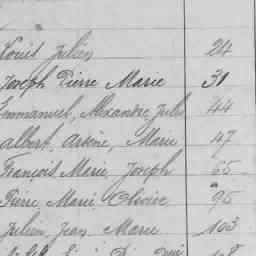 Louis Julien 24
Joseph Pierre Marie 31
Emmanuel, Alexandre, Jules 44
Albert, Arsène, Marie 47
François Marie Joseph 65
Pierre Marie Olivier 95
Julien Jean Marie 103